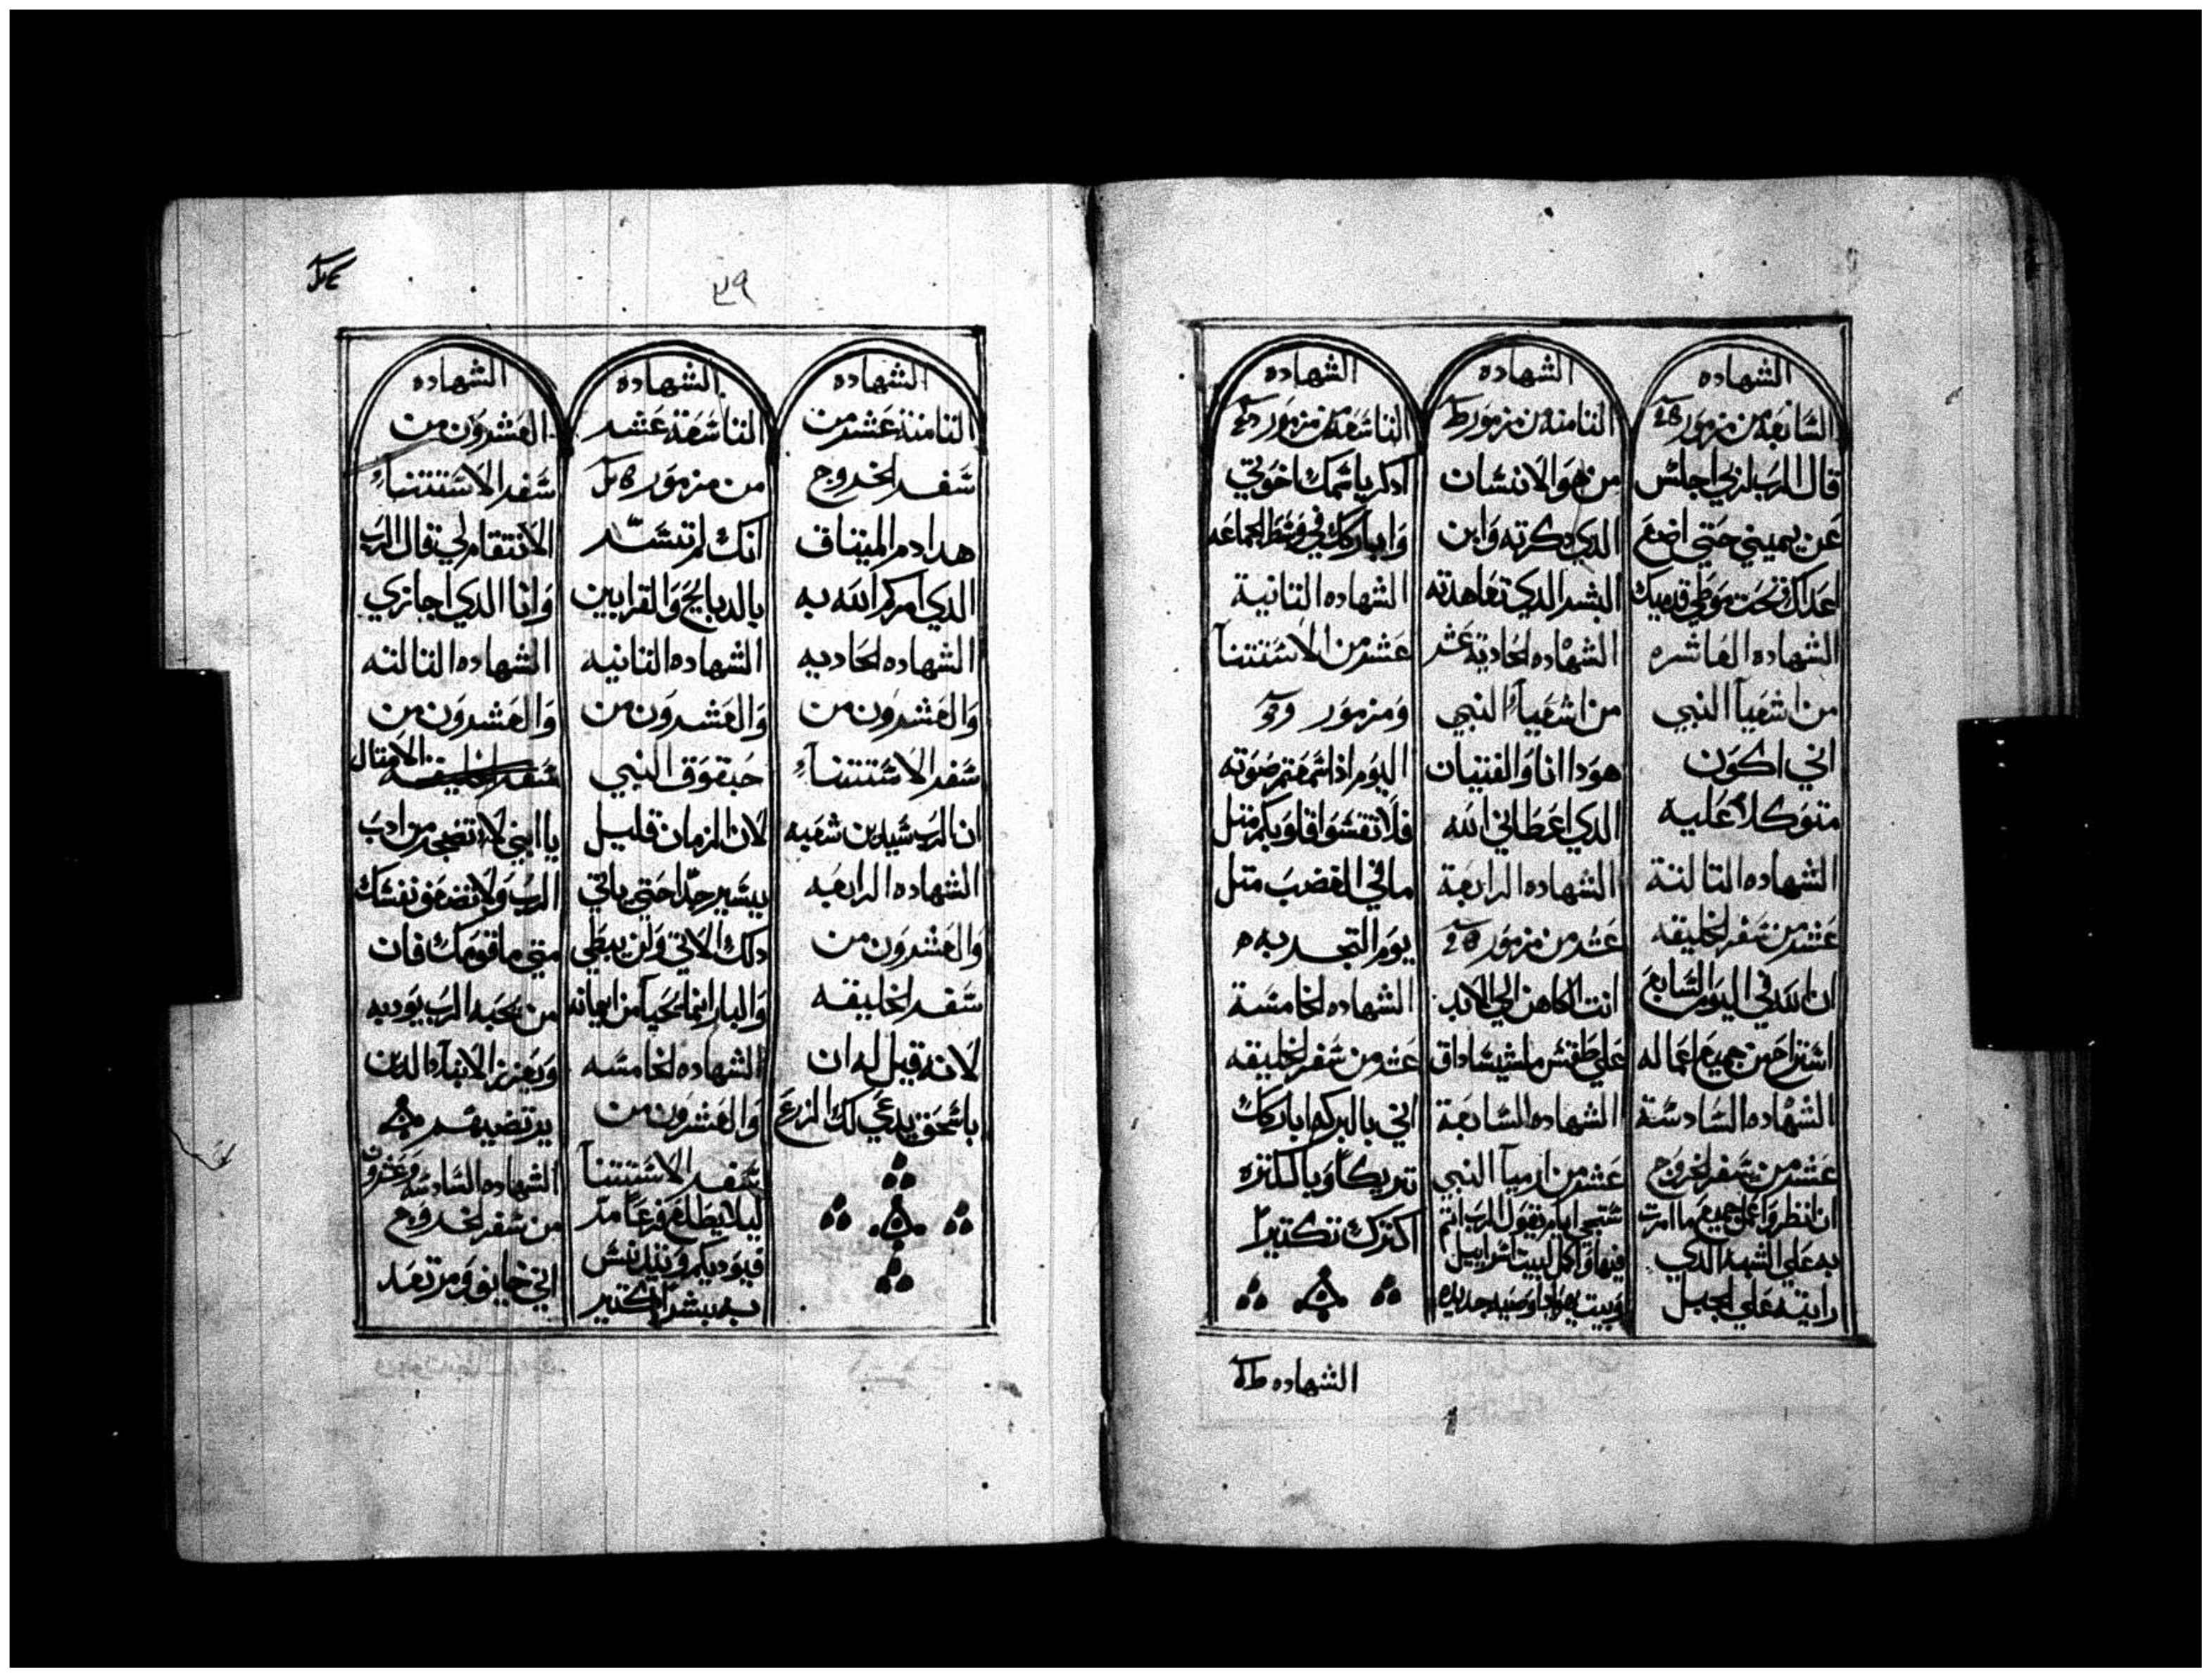 الشهاده
السابعه من مزمور
قال الرب لربي اجلس
عن يميني حتي اضع
اعداك تحت موطي قدميك
الشهاده العاشره
من اشعيا النبي
اني اكون
متوكلا عليه
الشهاده التالتة
عشر من سفر الخليقه
ان الله في اليوم السابع
استراح من جميع اعماله
الشهاده السادسة
عشر من سفر الخروج
ان انظر واعمل جميع ما امرت
به علي الشبه الذي
رايته علي الجبل
الشهاده
التامنه من مزمور
من هو الانسان
الدي دكرته وابن
البشر الدي تعاهدته
الشهاده الحادية عشر
من اشعياء النبي
هودا انا والفتيان
الدي اعطاني الله
الشهاده الرابعة
عشر من مزمور
انت الكاهن الي الابد
علي طقس ملشيساداق
الشهاده السابعة
عشر من ارميا النبي
ستجي ايام يقول الرب اتم
فيها واكمل لبيت اسراييل
وبيت يهودا وصيه جديده
الشهاده
التاسعه من مزمور
ادكر باسمك اخوتي
واباركك في وسط الجماعه
الشهاده التانية
عشر من الاستتنا
ومزمور
اليوم اذا سمعتم صوته
فلا تقسوا قلوبكم متل
ما في الغضب متل
يوم التجربه
الشهاده الخامسة
عشر من سفر الخليقه
اني بالبركه اباركك
تبريكا وبالكتره
اكترك تكتيرا
الشهاده
٣٩
الشهاده
التامنة عشر من
سفر الخروج
هدا دم الميتاق
الدي امركم الله به
الشهاده الحاديه
والعشرون من
سفر الاستتناء
ان الرب سيدين شعبه
الشهاده الرابعه
والعشرون من
سفر الخليقه
لانه قيل له ان
باسحق يدعي لك الزرع
الشهاده
التاسعة عشر
من مزمور
انك لم تسر
بالدبايح والقرابين
الشهاده التانيه
والعشرون من
حبقوق النبي
لان الزمان قليل
يسير جدا حتي ياتي
دلك الاتي ولن يبطي
والبار انما يحيا من ايمانه
الشهاده الخامسه
والعشرون من
سفر الاستتنا
ليلا يطلع فرعا مر
فيوديكم ويتدنس
به بشر كتير
الشهاده
العشرون من
سفر الاستتناء
الانتقام لي قال الرب
وانا الدي اجازي
الشهاده التالته
والعشرون من
سفر الخليقه الامتال
يا ابني لا تضجر من ادب
الرب ولا تضعف نفسك
متي ما قومك فان
من يحبه الرب يودبه
ويعزر الابناء الدين
يرتضيهم
الشهاده السادسه وعشرون
من سفر الخروج
اني خايف ومرتعد